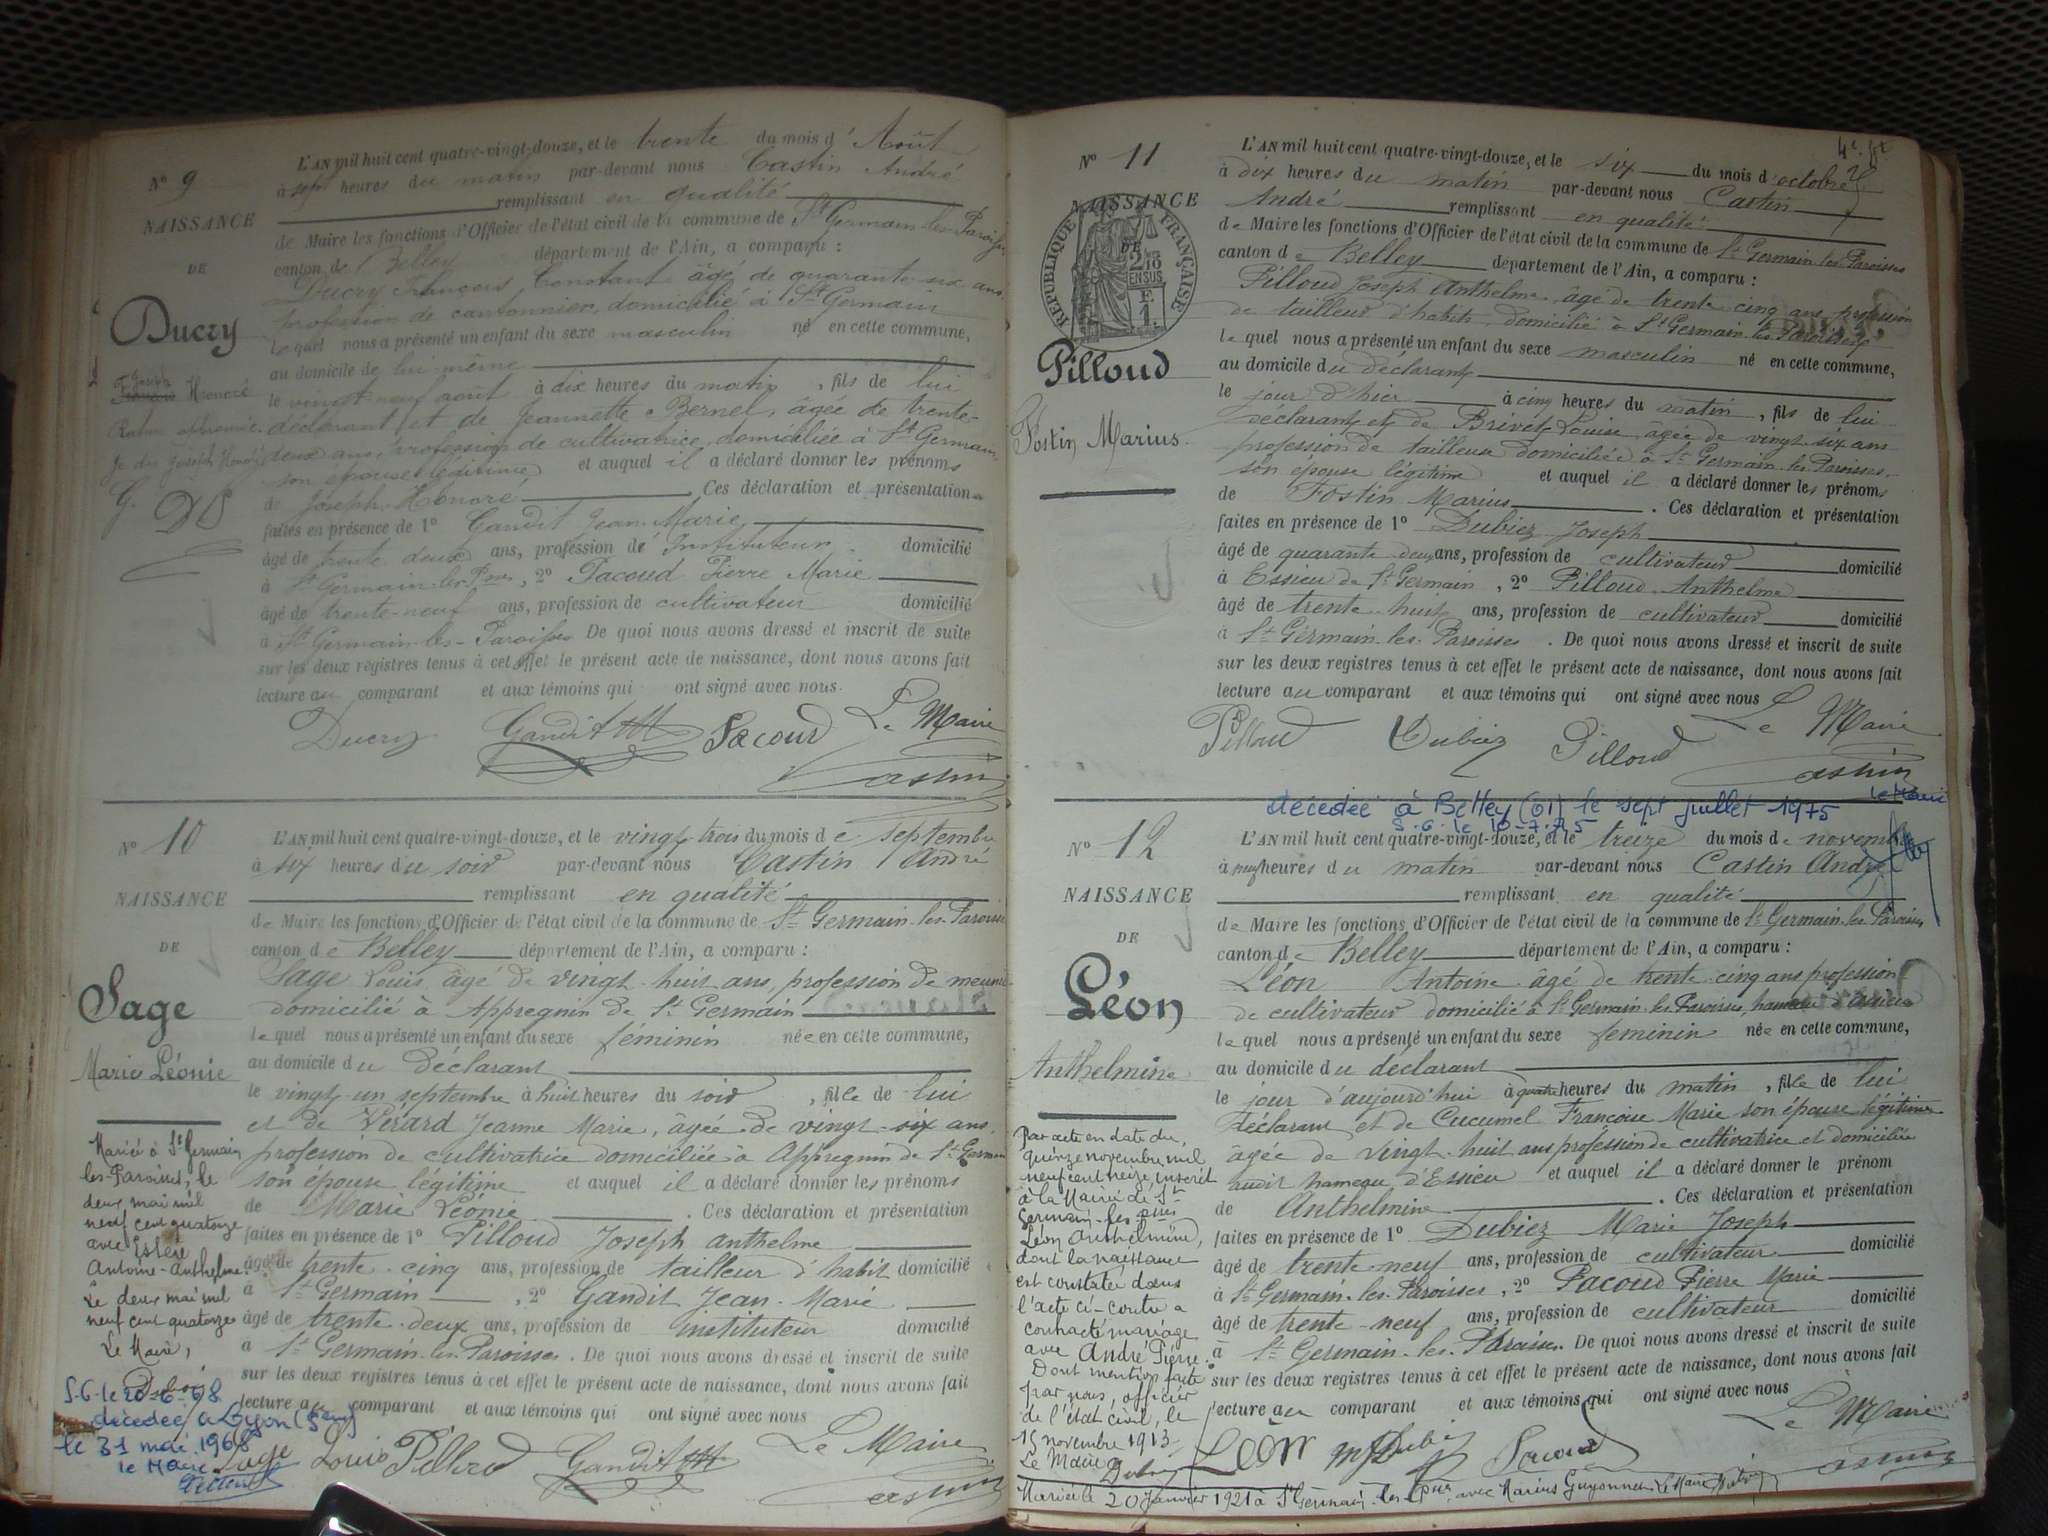 N° 9
NAISSANCE
DE
Ducry
Joseph Honoré
L'AN mil huit cent quatre-vingt-douze, et le trente du mois d'Août
à sept heures du matin par-devant nous Castin André
remplissant en qualité
de Maire les fonctions d'Officier de l'état civil de la commune de St Germain-les-Paroisses
canton de Belley département de l'Ain, a comparu :
Ducry François Constant âgé de quarante-six ans
profession de cantonnier, domicilié à St Germain
lequel nous a présenté un enfant du sexe masculin né en cette commune,
au domicile de lui même
le vingt-neuf août à dix heures du matin, fils de lui
déclarant et de Jeannette Bernel, âgée de trente-
deux ans, profession de cultivatrice, domiciliée à St Germain,
son épouse légitime et auquel il a déclaré donner les prénoms
de Joseph Honoré. Ces déclaration et présentation
faites en présence de 1° Gandit Jean-Marie
âgé de trente deux ans, profession de Instituteur domicilié
à St Germain-les-Pses, 2° Pacoud Pierre Marie
âgé de trente-neuf ans, profession de cultivateur domicilié
à St Germain-les-Paroisses De quoi nous avons dressé et inscrit de suite
sur les deux registres tenus à cet effet le présent acte de naissance, dont nous avons fait
lecture au comparant et aux témoins qui ont signé avec nous.
Ducry Gandit JM Pacoud Le Maire
Castin
N° 10
NAISSANCE
DE
Sage
Marie Léonie
Mariée à St Germain
les-Paroisses, le
deux mai mil
neuf cent quatorze
avec
Antoine-Anthelme
Le deux mai mil
neuf cent quatorze
Le Maire,
S.G. le 20-6-68
décédée à Lyon
le 31 mai 1968
le Maire
L'AN mil huit cent quatre-vingt-douze, et le vingt-trois du mois de septembre
à six heures du soir par-devant nous Castin André
remplissant en qualité
de Maire les fonctions d'Officier de l'état civil de la commune de St Germain-les-Paroisses
canton de Belley département de l'Ain, a comparu :
Sage Louis âgé de vingt-huit ans, profession de meunier
domicilié à Appregnin de St Germain
lequel nous a présenté un enfant du sexe féminin née en cette commune,
au domicile du déclarant
le vingt-un septembre à huit heures du soir, fille de lui
et de Vérard Jeanne Marie, âgée de vingt-six ans,
profession de cultivatrice domiciliée à Appregnin de St Germain
son épouse légitime et auquel il a déclaré donner les prénoms
de Marie Léonie. Ces déclaration et présentation
faites en présence de 1° Pilloud Joseph Anthelme
âgé de trente-cinq ans, profession de tailleur d'habit domicilié
à St Germain, 2° Gandit Jean-Marie
âgé de trente-deux ans, profession de instituteur domicilié
à St Germain-les-Paroisses. De quoi nous avons dressé et inscrit de suite
sur les deux registres tenus à cet effet le présent acte de naissance, dont nous avons fait
lecture au comparant et aux témoins qui ont signé avec nous
Sage Louis Pilloud Gandit JM Le Maire
Castin
N° 11
NAISSANCE
DE
RÉPUBLIQUE FRANÇAISE
2/10 EN SUS
Pilloud
Fostin Marius
L'AN mil huit cent quatre-vingt-douze, et le six du mois d'octobre
à dix heures du matin par-devant nous Castin
André remplissant en qualité
de Maire les fonctions d'Officier de l'état civil de la commune de St Germain-les-Paroisses
canton de Belley département de l'Ain, a comparu :
Pilloud Joseph Anthelme, âgé de trente-cinq ans, profession
de tailleur d'habits, domicilié à St Germain-les-Paroisses
lequel nous a présenté un enfant du sexe masculin né en cette commune,
au domicile du déclarant
le jour d'hier à cinq heures du matin, fils de lui
déclarant et de Brivet Louise âgée de vingt-six ans
profession de tailleuse domiciliée à St Germain-les-Paroisses
son épouse légitime et auquel il a déclaré donner les prénoms
de Fostin Marius. Ces déclaration et présentation
faites en présence de 1° Dubiez Joseph
âgé de quarante deux ans, profession de cultivateur domicilié
à Essieu de St Germain, 2° Pilloud Anthelme
âgé de trente-huit ans, profession de cultivateur domicilié
à St Germain-les-Paroisses. De quoi nous avons dressé et inscrit de suite
sur les deux registres tenus à cet effet le présent acte de naissance, dont nous avons fait
lecture au comparant et aux témoins qui ont signé avec nous
Pilloud Dubiez Pilloud Le Maire
Castin
décédée à Belley (01) le sept juillet 1975
S.G. le 10-7-75
le Maire
N° 12
NAISSANCE
DE
Léon
Anthelmine
Par acte en date du
quinze novembre mil
neuf cent treize, inscrit
à la Mairie de St
Germain-les-Pses
Léon Anthelmine,
dont la naissance
est constatée dans
l'acte ci-contre a
contracté mariage
avec André Pierre.
Dont mention faite
par nous, officier
de l'état civil, le
15 novembre 1913
Le Maire
L'AN mil huit cent quatre-vingt-douze, et le treize du mois de novembre
à neuf heures du matin par-devant nous Castin André
remplissant en qualité
de Maire les fonctions d'Officier de l'état civil de la commune de St Germain-les-Paroisses
canton de Belley département de l'Ain, a comparu :
Léon Antoine âgé de trente-cinq ans profession
de cultivateur domicilié à St Germain-les-Paroisses, hameau d'Essieu
lequel nous a présenté un enfant du sexe féminin née en cette commune,
au domicile du déclarant
le jour d'aujourd'hui à quatre heures du matin, fille de lui
déclarant et de Cucumel Françoise Marie son épouse légitime
âgée de vingt-huit ans profession de cultivatrice et domiciliée
audit hameau d'Essieu et auquel il a déclaré donner le prénom
de Anthelmine. Ces déclaration et présentation
faites en présence de 1° Dubiez Marie Joseph
âgé de trente-neuf ans, profession de cultivateur domicilié
à St Germain-les-Paroisses, 2° Pacoud Pierre Marie
âgé de trente-neuf ans, profession de cultivateur domicilié
à St Germain-les-Paroisses. De quoi nous avons dressé et inscrit de suite
sur les deux registres tenus à cet effet le présent acte de naissance, dont nous avons fait
lecture au comparant et aux témoins qui ont signé avec nous
Léon M J Dubiez Pacoud Le Maire
Castin
Mariée le 20 Janvier 1921 à St Germain-les-Pses avec Marius Guyonnet Le Maire